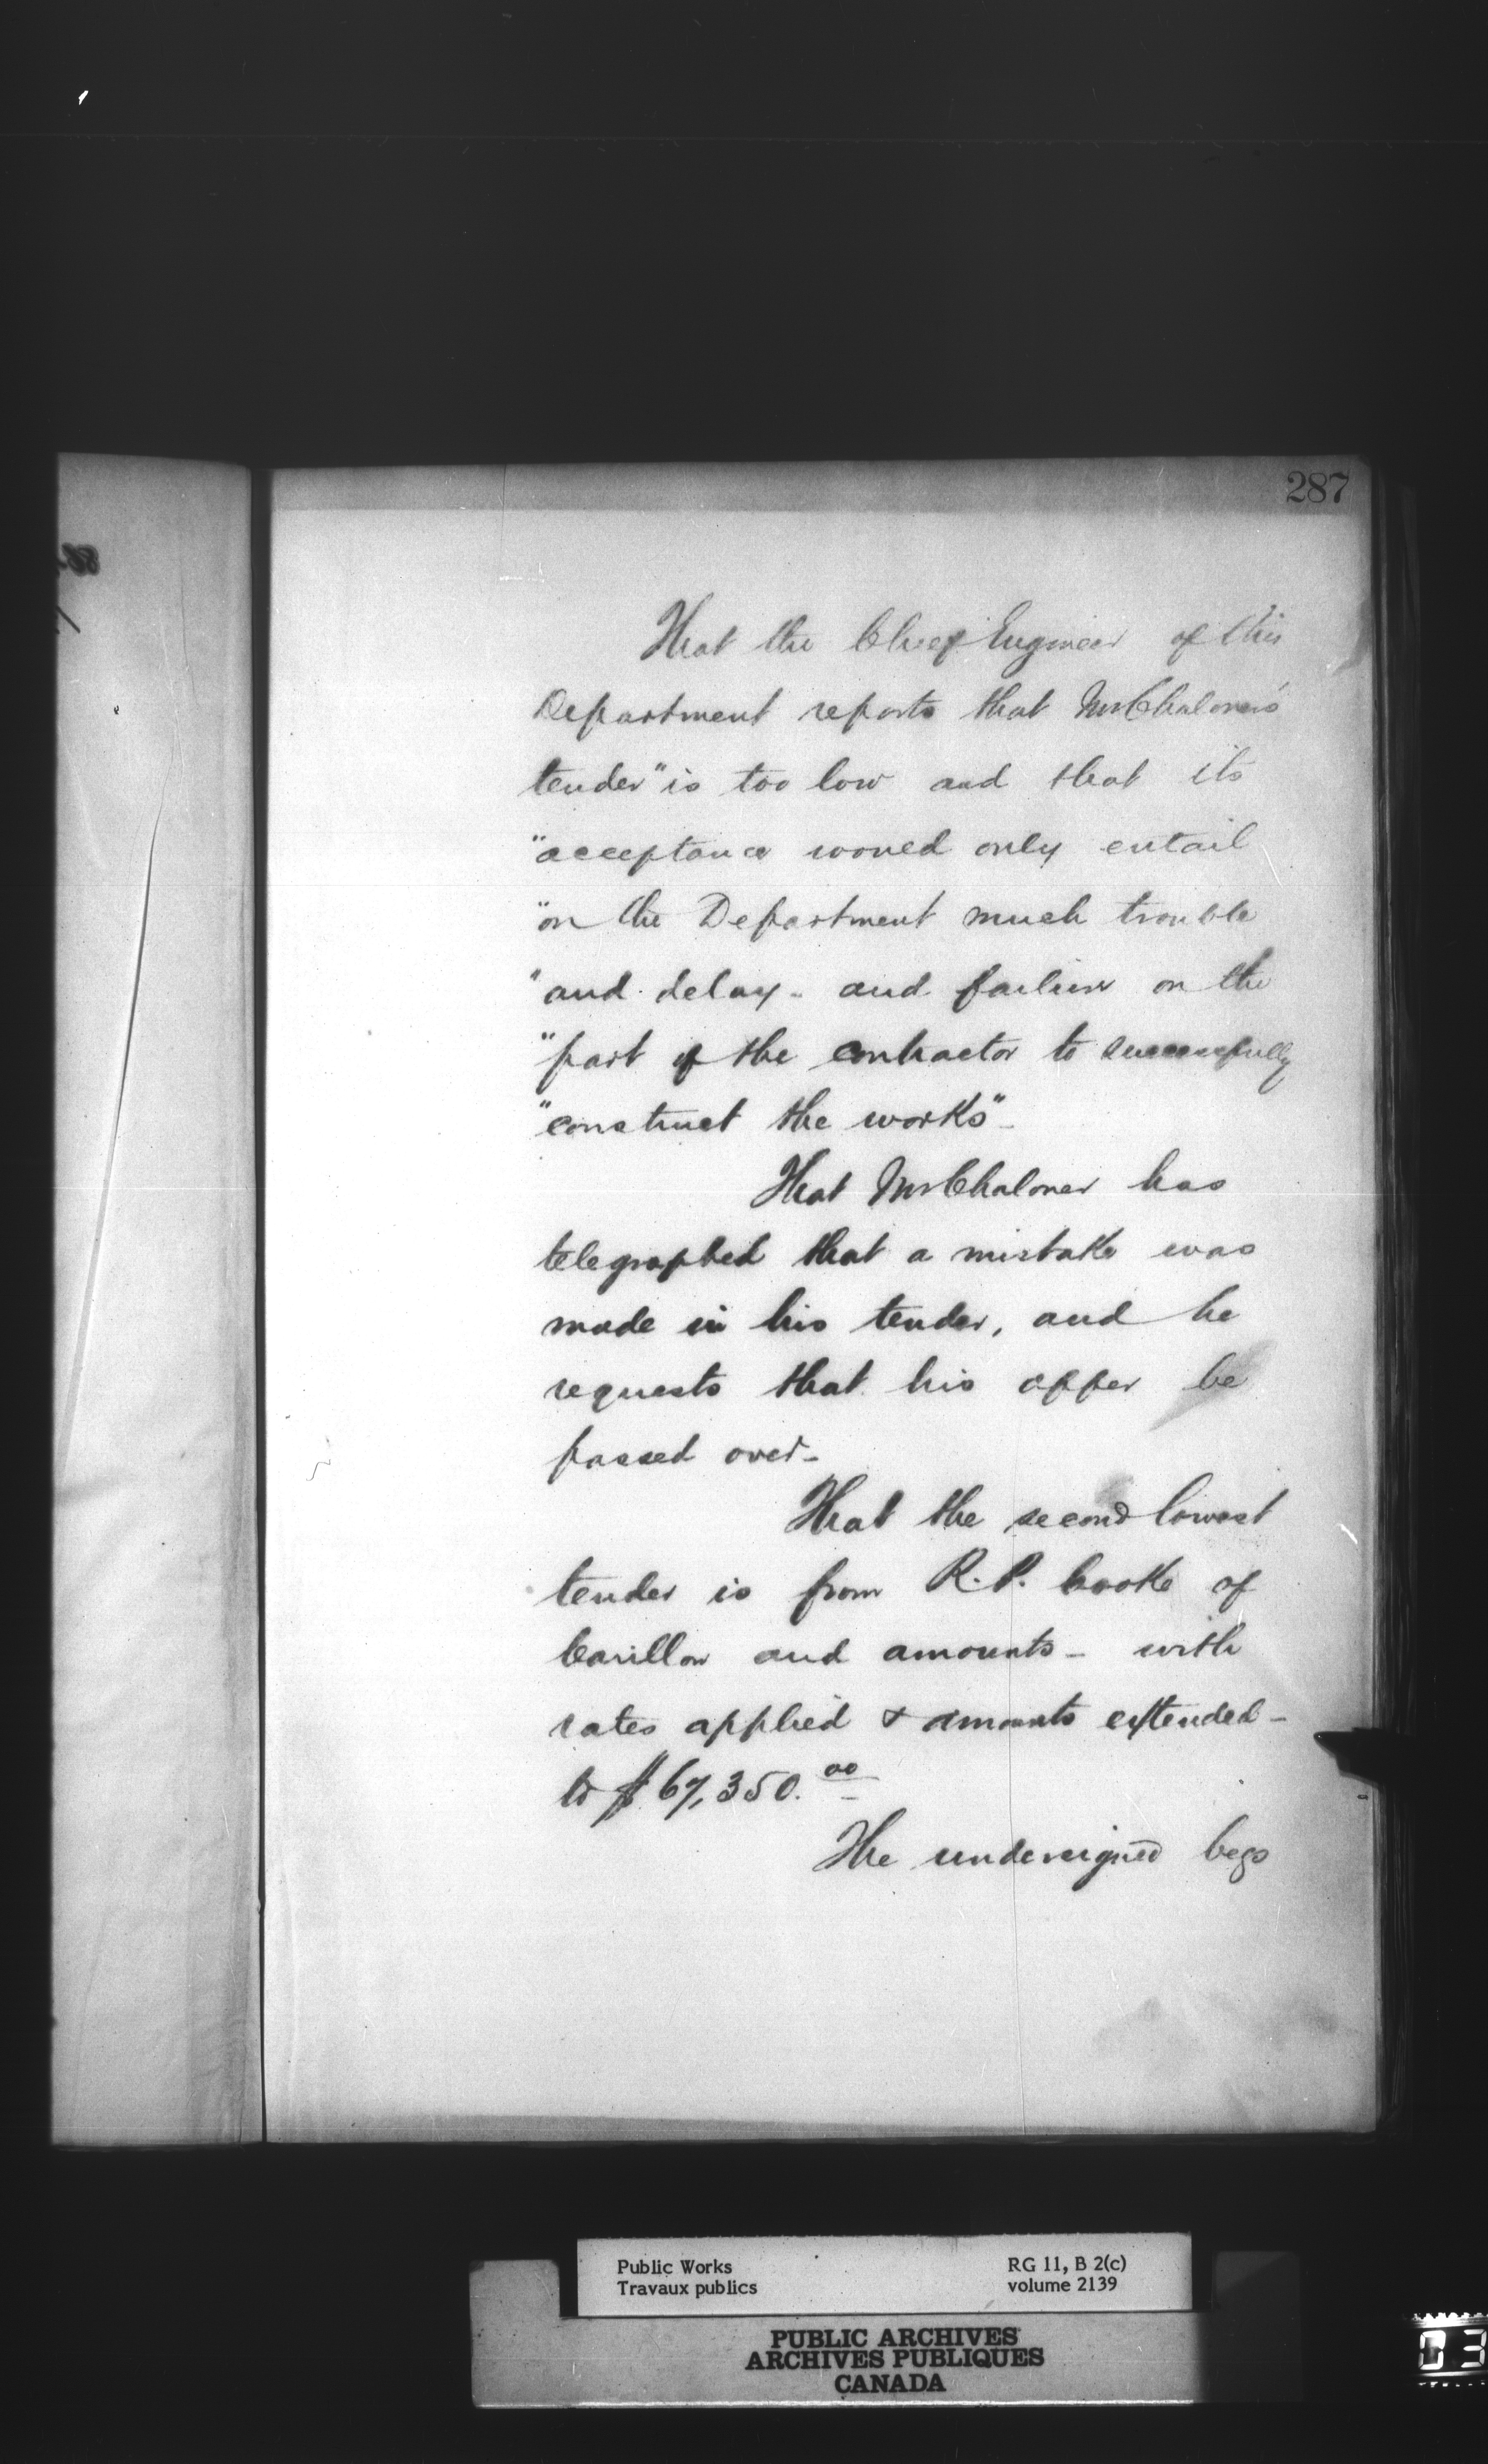 287
That the Chief Engineer of this
Department reports that Mr Chaloner's
tender "is too low and that its
"acceptance would only entail
"on the Department much trouble
"and delay - and failure on the
"part of the contractor to successfully
"construct the works" -
That Mr Chaloner has
telegraphed that a mistake was
made in his tender, and he
requests that his offer be
passed over -
That the second lowest
tender is from R. P. Cooke of
Carillon and amounts - with
rates applied & amounts extended -
to $67,350.00
The undersigned begs
Public Works
Travaux publics
RG 11, B 2(c)
volume 2139
PUBLIC ARCHIVES
ARCHIVES PUBLIQUES
CANADA
03